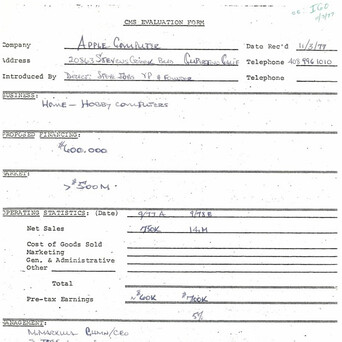 CMS EVALUATION FORM
Company APPLE COMPUTER Date Rec'd 11/3/77
Address 20863 STEVENS CREEK BLVD CUPERTINO CALIF Telephone 408 996 1010
Introduced By STEVE JOBS VP & FOUNDER Telephone
BUSINESS:
HOME - HOBBY COMPUTERS
PROPOSED FINANCING:
$600,000
MARKET:
> $500M.
OPERATING STATISTICS: (Date) 9/77 A 9/78 E
Net Sales 750K 14M
Cost of Goods Sold
Marketing
Gen. & Administrative
Other
Total
Pre-tax Earnings $60K $700K
5%
MANAGEMENT:
M. MARKKULA CHMN/CEO